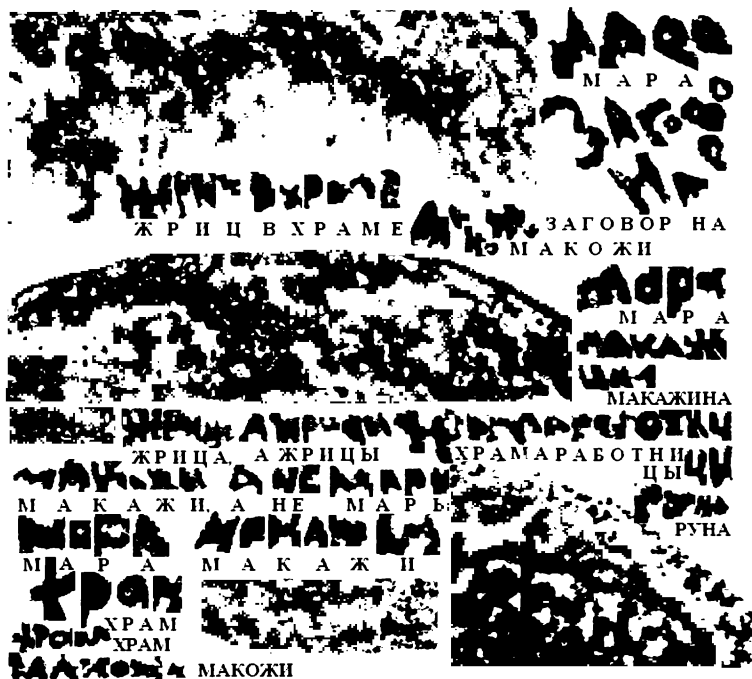 МАРА
ЖРИЦ В ХРАМЕ
ЗАГОВОР НА
МАКОЖИ
МАРА
МАКАЖИНА
ЖРИЦА, А ЖРИЦЫ ХРАМА РАБОТНИ
ЦЫ
МАКАЖИ, А НЕ МАРЫ
РУНА
МАРА МАКАЖИ
ХРАМ
ХРАМ
МАКОЖИ